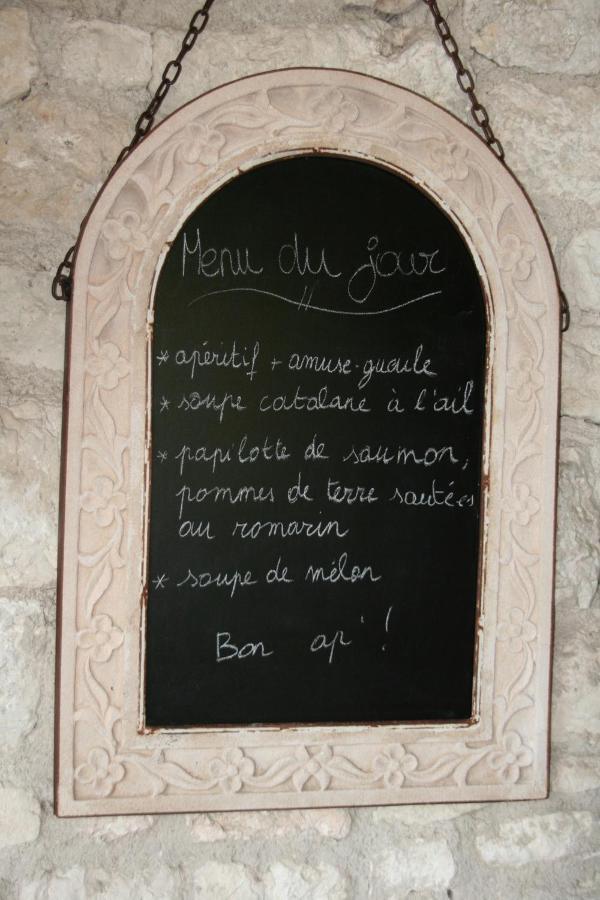 Menu du jour
* apéritif + amuse-gueule
* soupe catalane à l'ail
* papillotte de saumon,
pommes de terre sautées
au romarin
* soupe de mélon
Bon ap' !